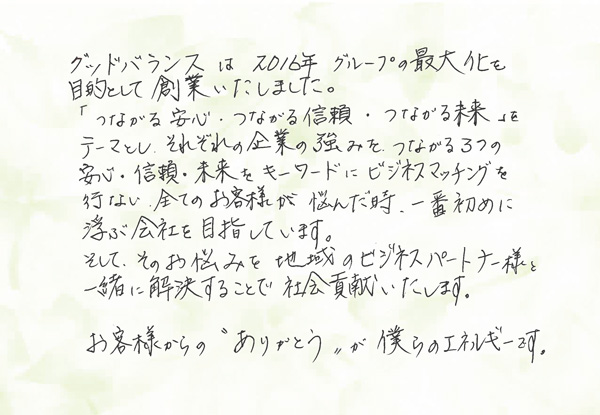 グッドバランスは2016年グループの最大化を
目的として創業いたしました。
「つながる安心・つながる信頼・つながる未来」を
テーマとし、それぞれの企業の強みを、つながる3つの
安心・信頼・未来をキーワードにビジネスマッチングを
行ない、全てのお客様が悩んだ時、一番初めに
浮ぶ会社を目指しています。
そして、そのお悩みを地域のビジネスパートナー様と
一緒に解決することで社会貢献いたします。
お客様からの〝ありがとう〟が僕らのエネルギーです。